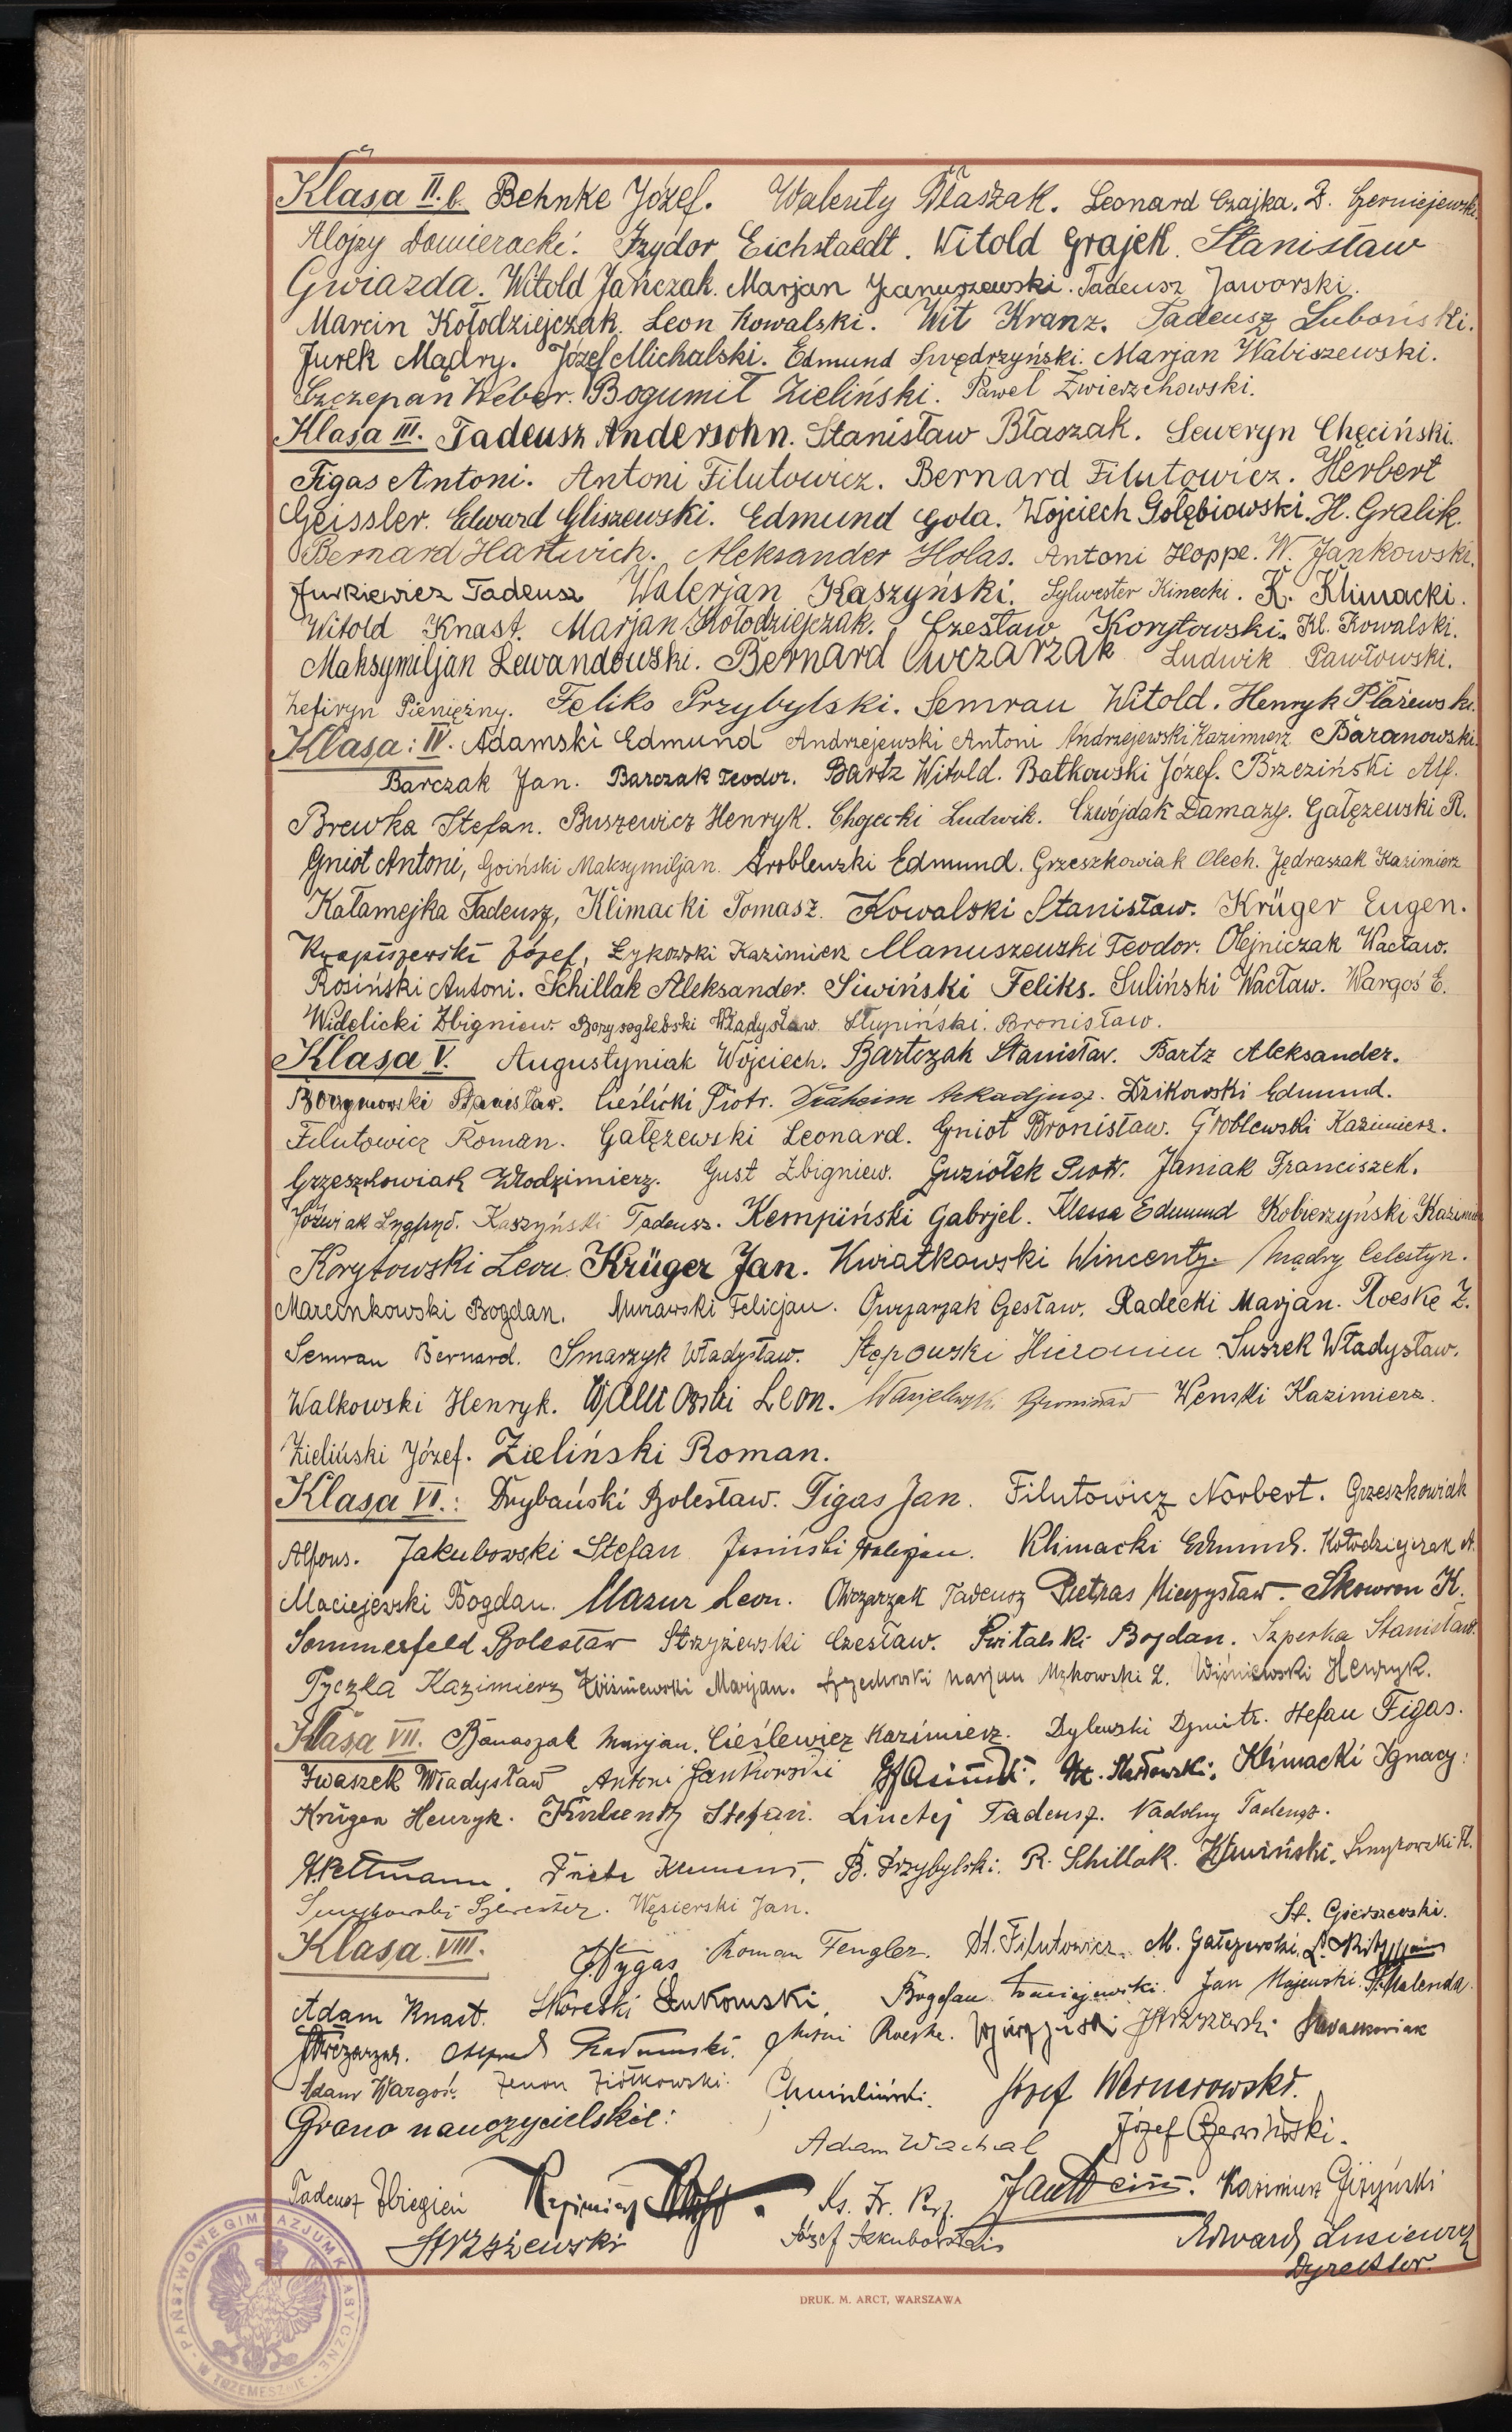 Klasa II.b. Behnke Józef. Walenty Błaszak. Leonard Czajka. Z. Czerniejewski.
Alojzy Domieracki. Izydor Eichstaedt. Witold Grajek. Stanisław
Gwiazda. Witold Jańczak. Marjan Januszewski. Tadeusz Jaworski.
Marcin Kołodziejczak. Leon Kowalski. Wit Kranz. Tadeusz Luboński.
Jurek Mądry. Józef Michalski. Edmund Swędrzyński. Marjan Wabiszewski.
Szczepan Weber. Bogumił Zieliński. Paweł Zwierzchowski.
Klasa III. Tadeusz Andersohn. Stanisław Błaszak. Seweryn Chęciński.
Figas Antoni. Antoni Filutowicz. Bernard Filutowicz. Herbert
Geissler. Edward Gliszewski. Edmund Gola. Wojciech Gołębiowski. H. Gralik.
Bernard Hartwich. Aleksander Holas. Antoni Hoppe. W. Jankowski.
Jurkiewicz Tadeusz Walerjan Kaszyński. Sylwester Kinecki. K. Klimacki.
Witold Knast. Marjan Kołodziejczak. Czesław Korytowski. Kl. Kowalski.
Maksymiljan Lewandowski. Bernard Owczarzak Ludwik Pawłowski.
Zefiryn Pieniężny. Feliks Przybylski. Semrau Witold. Henryk Plażewski.
Klasa: IV. Adamski Edmund Andrzejewski Antoni Andrzejewski Kazimierz Baranowski.
Barczak Jan. Barczak Teodor. Bartz Witold. Batkowski Józef. Brzeziński Alf.
Brewka Stefan. Buszewicz Henryk. Chojecki Ludwik. Czwójdak Damazy. Gałęzewski R.
Gniot Antoni, Goiński Maksymiljan. Groblewski Edmund. Grzeszkowiak Olech. Jędraszak Kazimierz
Kałamejka Tadeusz, Klimacki Tomasz. Kowalski Stanisław. Krüger Eugen.
Krapiszewski Józef, Łykowski Kazimierz Manuszewski Teodor. Olejniczak Wacław.
Rosiński Antoni. Schillak Aleksander. Siwiński Feliks. Suliński Wacław. Wargoś E.
Widelicki Zbigniew. Borysogłebski Władysław. Słupiński. Bronisław.
Klasa V. Augustyniak Wojciech. Bartczak Stanisław. Bartz Aleksander.
Stanisław. Cieślicki Piotr. Draheim Arkadjusz. Dzikowski Edmund.
Filutowicz Roman. Gałęzewski Leonard. Gniot Bronisław. Groblewski Kazimierz.
Grzeszkowiak Włodzimierz. Gust Zbigniew. Guziołek Piotr. Janiak Franciszek.
Jóźwiak Zygfryd. Kaszyński Tadeusz. Kempiński Gabrjel. Klessa Edmund Kobierzyński Kazimierz
Korytowski Leon. Krüger Jan. Kwiatkowski Wincenty. Mądry Celestyn.
Marcinkowski Bogdan. Murawski Felicjan. Owczarzak Czesław. Radecki Marjan. Roeske Z.
Semrau Bernard. Smarzyk Władysław. Stępowski Hieronim Suszek Władysław.
Walkowski Henryk. Leon. Bronisław Wenski Kazimierz.
Zieliński Józef. Zieliński Roman.
Klasa VI.: Drybański Bolesław. Figas Jan. Filutowicz Norbert. Grzeszkowiak
Alfons. Jakubowski Stefan Jasiński Walerjan. Klimacki Edmund. Kołodziejczak A.
Maciejewski Bogdan. Mazur Leon. Owczarzak Tadeusz Pietras Mieczysław. Skowron K.
Sommerfeld Bolesław Strzyżewski Czesław. Świtalski Bogdan. Szperka Stanisław.
Tyczka Kazimierz Marjan. Marjan L. Wiśniewski Henryk.
Klasa VII. Banaszak Marjan. Cieślewicz Kazimierz. Dylewski Dymitr. Stefan Figas.
Iwaszek Władysław Antoni Jankowski Klimacki Ignacy.
Krüger Henryk. Stefan. Linetej Tadeusz. Nadolny Tadeusz.
Klemens. B. Przybylski. R. Schillak. Smykowski H.
Smykowski Sylwester. Węsierski Jan. St. Gierszewski.
Klasa VIII. J. Fygas Roman Fengler. St. Filutowicz. M. Gałęzewski.
Adam Knast. Żukowski. Bogdan Jan Majewski. Malenda.
Owczarzak. Roeske. Strzyżewski Nowakowiak
Adam Wargoś. Zenon Ziółkowski. Józef Wernerowski.
Grono nauczycielskie:
Adam Wachal Józef Czerwiński.
Tadeusz Zbiegień Kazimierz Ks. Fr. Kazimierz Giżyński
Strzyżewski Józef Jakubowski Edward Lusiewicz
Dyrektor.
DRUK. M. ARCT, WARSZAWA
PAŃSTWOWE GIMNAZJUM KLASYCZNE W TRZEMESZNIE